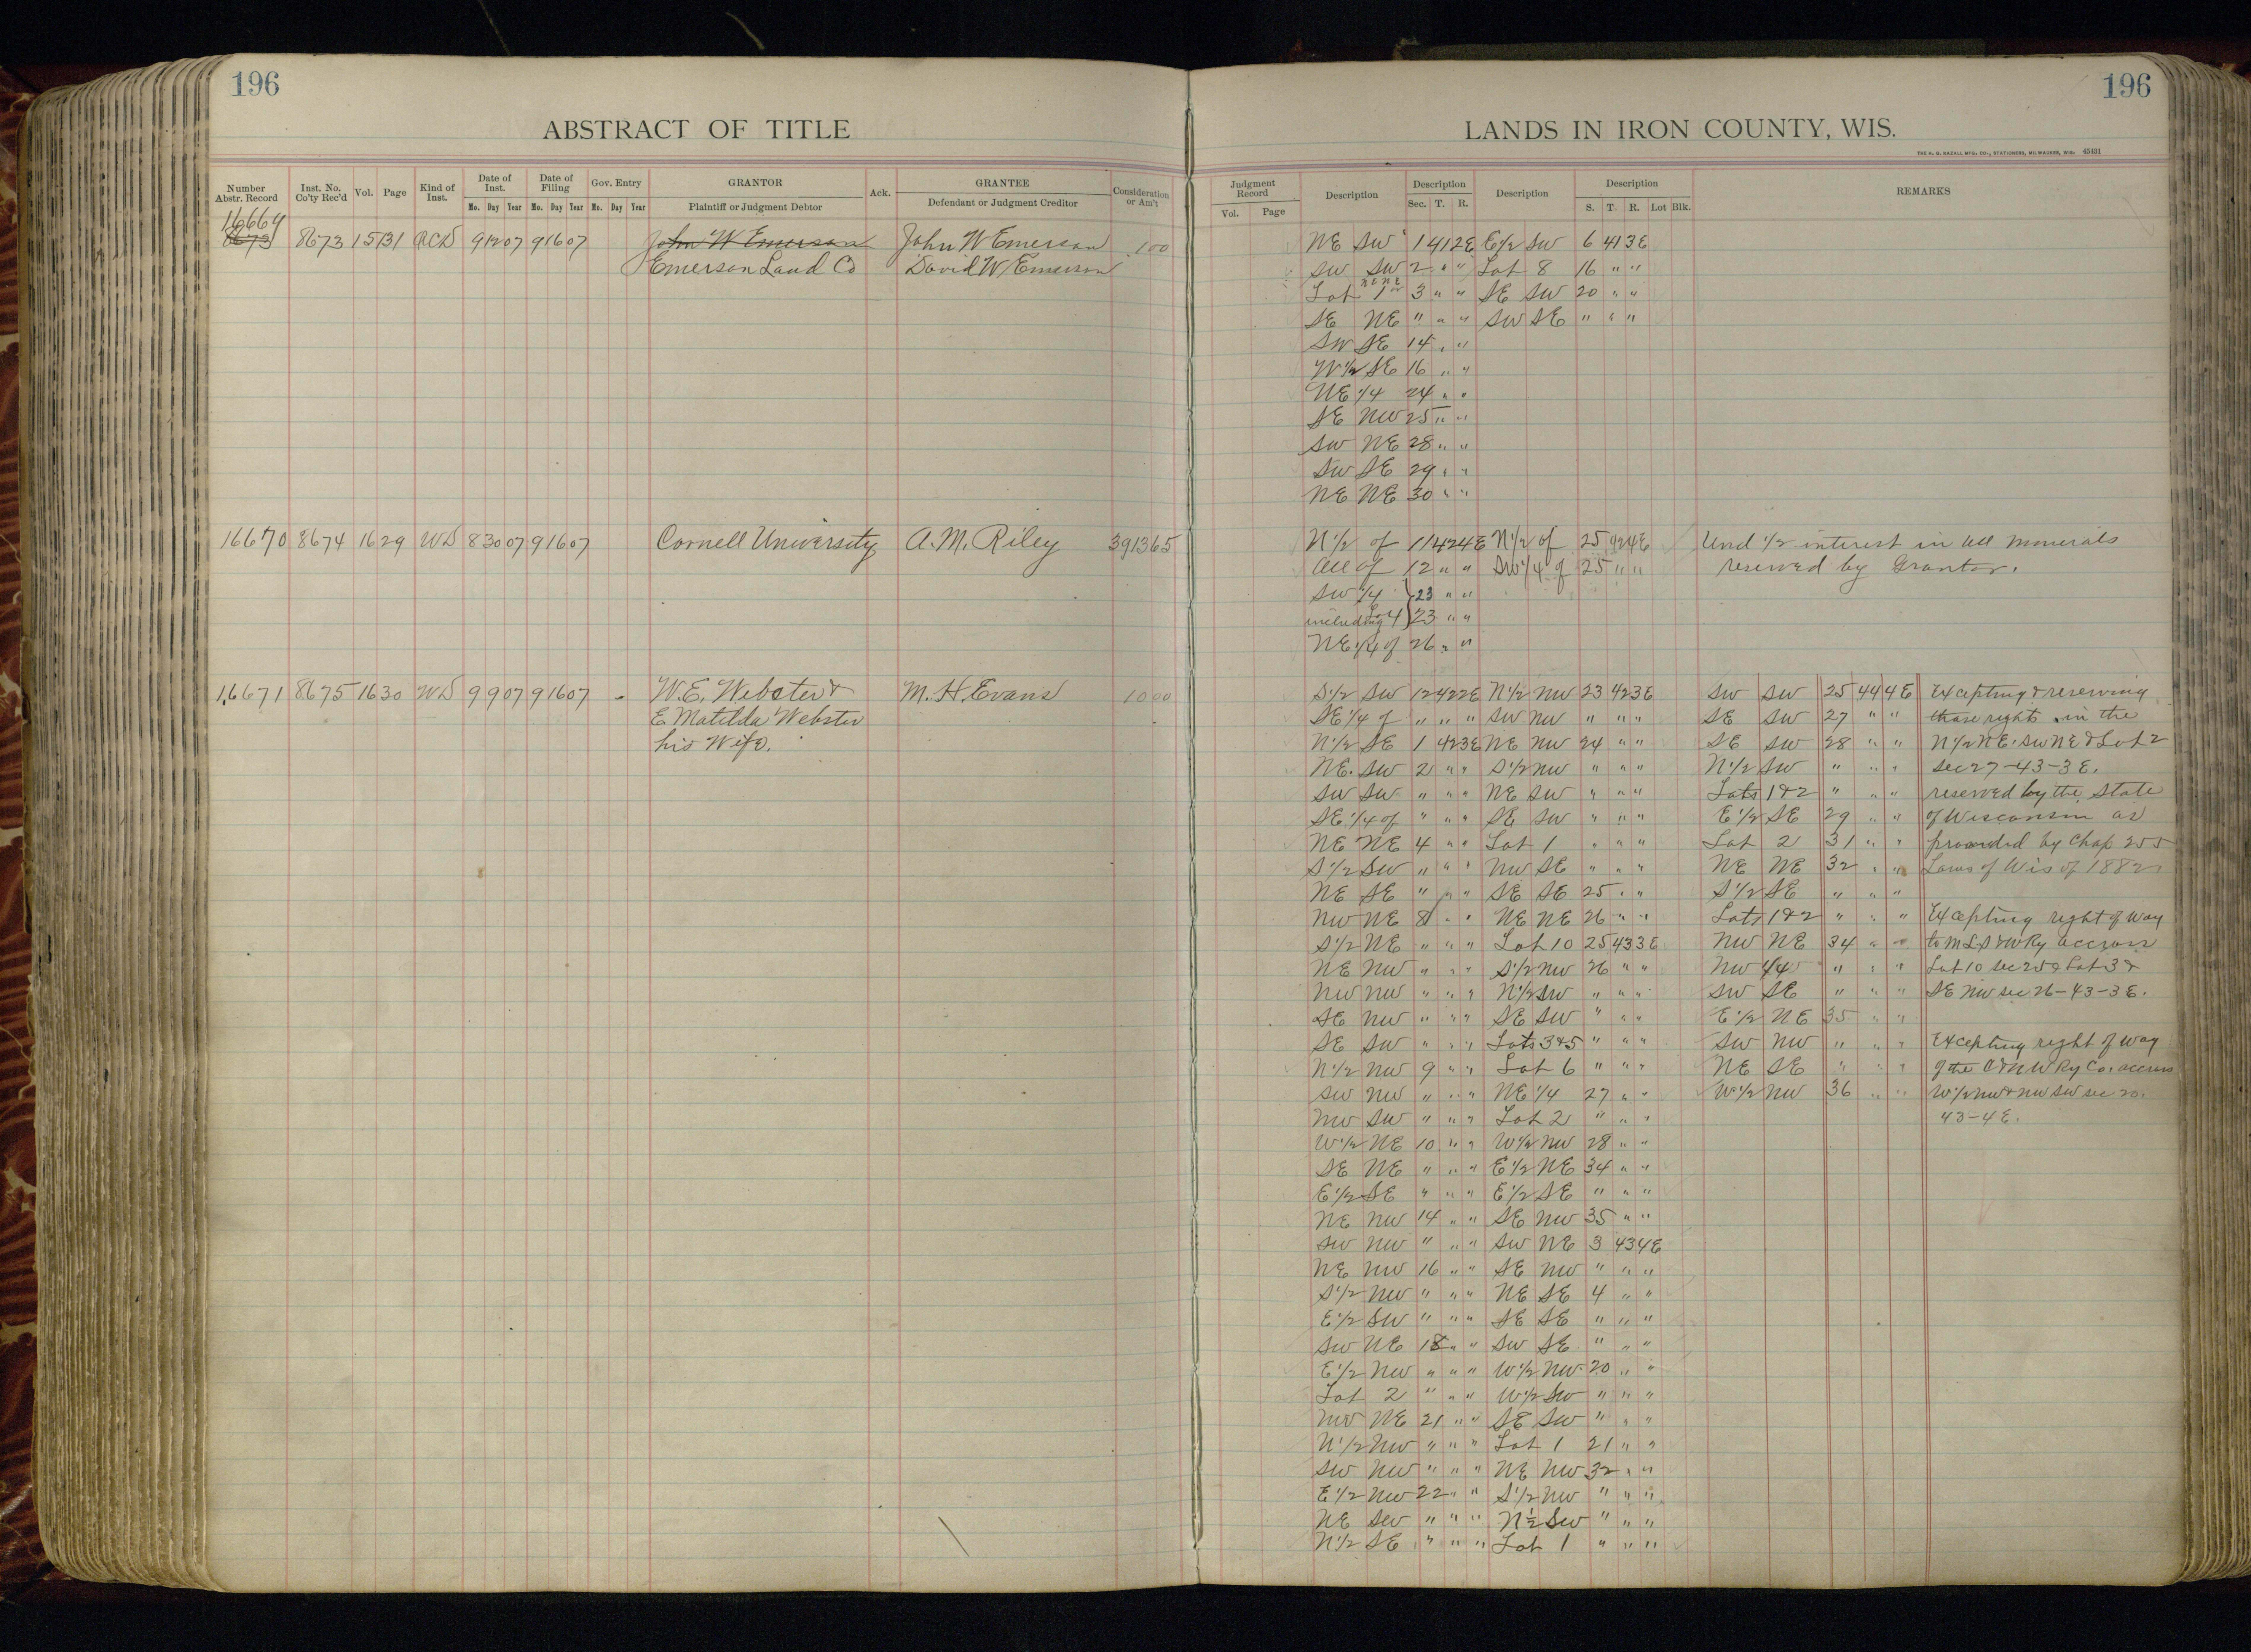 196
ABSTRACT OF TITLE
Number Abstr. Record | Inst. No. Co'ty Rec'd | Vol. | Page | Kind of Inst. | Date of Inst. Mo. Day Year | Date of Filing Mo. Day Year | Gov. Entry Mo. Day Year | GRANTOR Plaintiff or Judgment Debtor | Ack. | GRANTEE Defendant or Judgment Creditor | Consideration or Am't
16669
8673 8673 15 131 QCD 9 12 07 9 16 07 John W Emerson John W Emerson 1 00
Emerson Land Co David W Emerson
16670 8674 16 29 WD 8 30 07 9 16 07 Cornell University A. M. Riley 3913 65
16671 8675 16 30 WD 9 9 07 9 16 07 W. E. Webster & M. H. Evans 10 00
E Matilda Webster
his Wife.
196
LANDS IN IRON COUNTY, WIS.
THE H. G. RAZALL MFG. CO., STATIONERS, MILWAUKEE, WIS. 45431
Judgment Record Vol. Page | Description | Description Sec. T. R. | Description | Description S. T. R. Lot Blk. | REMARKS
NE SW 1 41 2E E½ SW 6 41 3E
SW SW 2 " " Lot 8 16 " "
NE NE
Lot 1 or 3 " " SE SW 20 " "
SE NE " " " SW SE " " "
SW SE 14 " "
W½ SE 16 " "
NE ¼ 24 " "
SE NW 25 " "
SW NE 28 " "
SW SE 29 " "
NE NE 30 " "
N½ of 11 42 4E N½ of 25 42 4E Und ½ interest in all minerals
All of 12 " " SW¼ of 25 " " reserved by Grantor.
SW ¼ } 23 " "
including Lot 4 } 23 " "
NE¼ of 26 " "
S½ SW 12 42 2E N½ NW 23 42 3E SW SW 25 44 4E Excepting & reserving
SE¼ of " " " SW NW " " " SE SW 27 " " those rights in the
N½ SE 1 42 3E NE NW 24 " " SE SW 28 " " N½ NE. SW NE & Lot 2
NE. SW 2 " " S½ NW " " " N½ SW " " " Sec 27-43-3E.
SW SW " " " NE SW " " " Lots 1&2 " " " reserved by the State
SE ¼ of " " " SE SW " " " E½ SE 29 " " of Wisconsin as
NE NE 4 " " Lot 1 " " " Lot 2 31 " " provided by Chap 255
S½ SW " " " NW SE " " " NE NE 32 " " Laws of Wis of 1882
NE SE " " " SE SE 25 " " S½ SE " " "
NW NE 8 " " NE NE 26 " " Lots 1&2 " " " Excepting right of way
S½ NE " " " Lot 10 25 43 3E NW NE 34 " " to MLS&W Ry accross
NE NW " " " S½ NW 26 " " NW ¼ " " " Lot 10 sec 25 & Lot 3 &
NW NW " " " N½ SW " " " SW SE " " " SE NW sec 26-43-3E.
SE NW " " " SE SW " " " E½ NE 35 " "
SE SW " " " Lots 3&5 " " " SW NW " " " Excepting right of way
N½ NW 9 " " Lot 6 " " " NE SE " " " of the C&NW Ry Co. accross
SW NW " " " NE ¼ 27 " " W½ NW 36 " " W½ NW & NW SW sec 20.
NW SW " " " Lot 2 " " " 43-4E.
W½ NE 10 " " W½ NW 28 " "
SE NE " " " E½ NE 34 " "
E½ SE " " " E½ SE " " "
NE NW 14 " " SE NW 35 " "
SW NW " " " SW NE 3 43 4E
NE NW 16 " " SE NW " " "
S½ NW " " " NE SE 4 " "
E½ SW " " " SE SE " " "
SW NE 18 " " SW SE " " "
E½ NW " " " W½ NW 20 " "
Lot 2 " " " W½ SW " " "
NW NE 21 " " SE SW " " "
N½ NW " " " Lot 1 21 " "
SW NW " " " NE NW 32 " "
E½ NW 22 " " S½ NW " " "
NE SW " " " N½ SW " " "
N½ SE " " " Lot 1 " " "